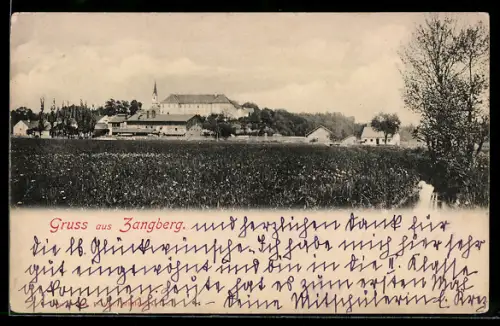 Gruss aus Zangberg. und herzlichen Dank für
die lb. Glückwünsche. Ich habe mich hier sehr
gut eingewöhnt und bin in die II. Klasse
gekommen. heute hat es zum ersten Mal
stark Deine Mitschülerin